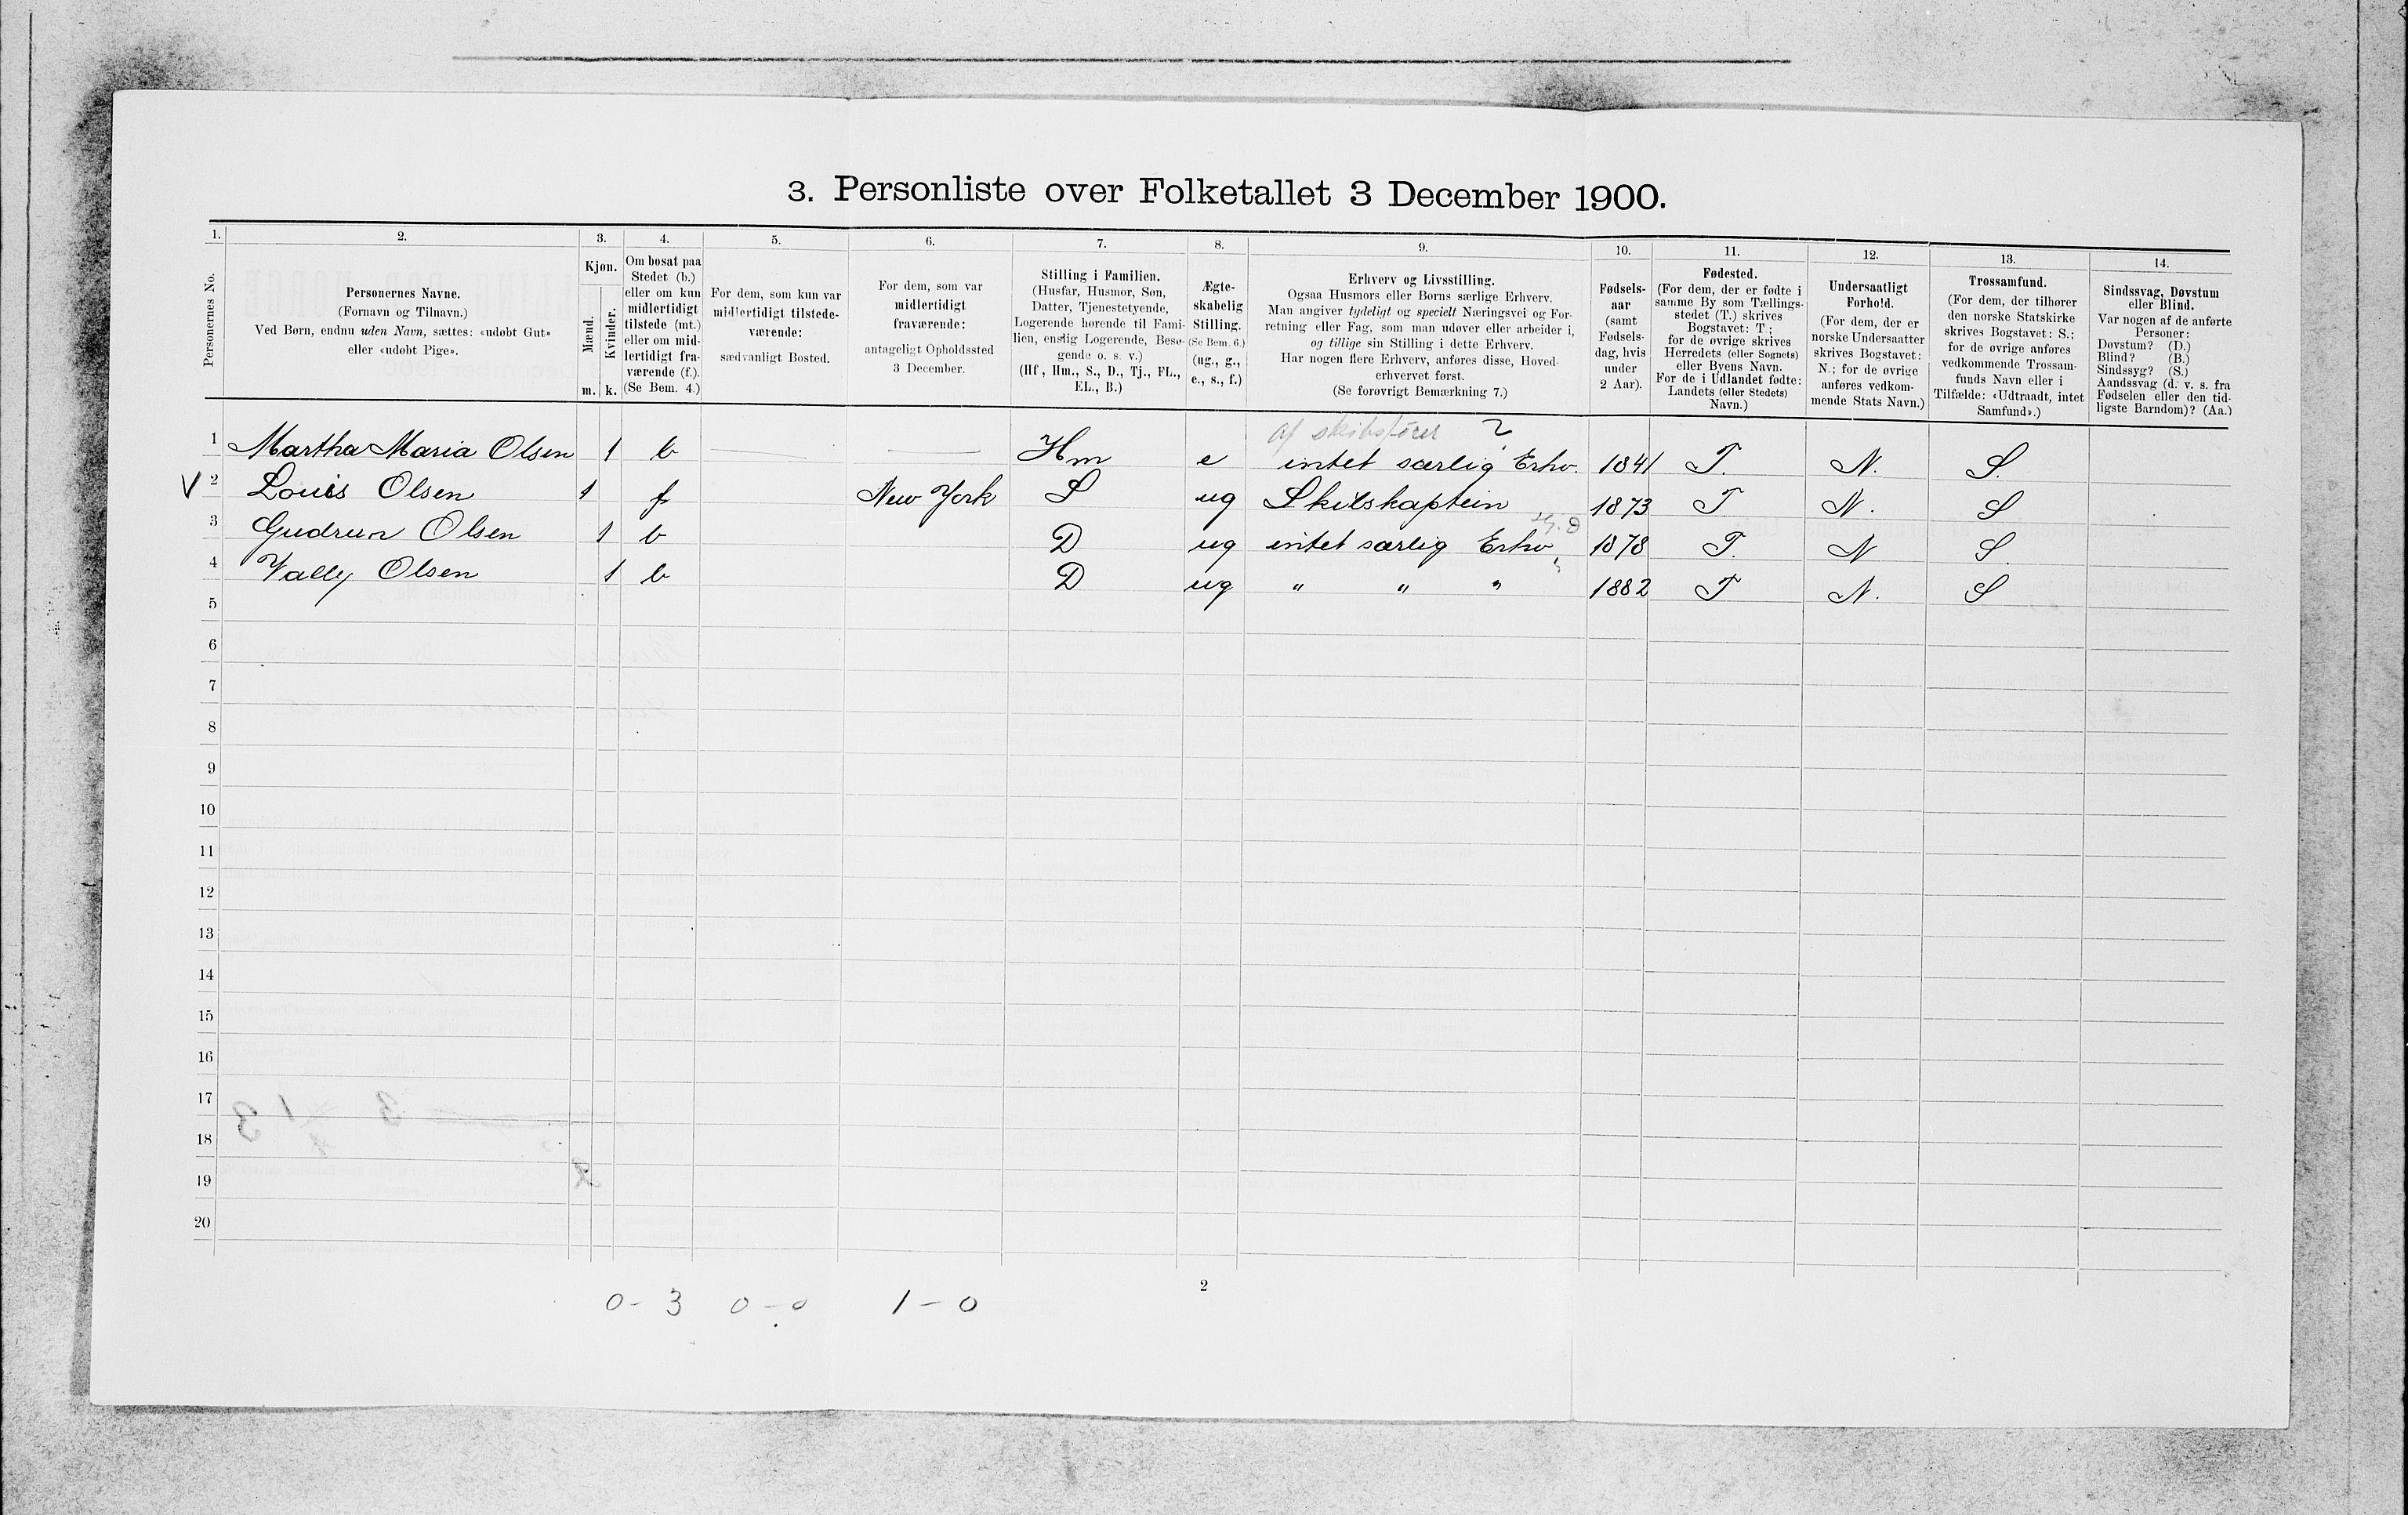 3. Personliste over Folketallet 3 December 1900.
1. 2. 3. 4. 5. 6. 7. 8. 9. 10. 11. 12. 13. 14.
Personernes No.
Personernes Navne.
(Fornavn og Tilnavn.)
Ved Børn, endnu uden Navn, sættes: «udøbt Gut»
eller «udøbt Pige».
Kjøn.
Mænd.
Kvinder.
m. k.
Om bosat paa
Stedet (b.)
eller om kun
midlertidigt
tilstede (mt.)
eller om mid-
lertidigt fra-
værende (f.).
(Se Bem. 4.)
For dem, som kun var
midlertidigt tilstede-
værende:
sædvanligt Bosted.
For dem, som var
midlertidigt
fraværende:
antageligt Opholdssted
3 December.
Stilling i Familien.
(Husfar, Husmor, Søn,
Datter, Tjenestetyende,
Logerende hørende til Fami-
lien, enslig Logerende, Besø-
gende o. s. v.)
(Hf., Hm., S., D., Tj., FL.,
EL., B.)
Ægte-
skabelig
Stilling.
(Se Bem. 6.)
(ug., g.,
e., s., f.)
Erhverv og Livsstilling.
Ogsaa Husmors eller Børns særlige Erhverv.
Man angiver tydeligt og specielt Næringsvei og For-
retning eller Fag, som man udøver eller arbeider i,
og tillige sin Stilling i dette Erhverv.
Har nogen flere Erhverv, anføres disse, Hoved-
erhvervet først.
(Se forøvrigt Bemærkning 7.)
Fødsels-
aar
(samt
Fødsels-
dag, hvis
under
2 Aar).
Fødested.
(For dem, der er fødte i
samme By som Tællings-
stedet (T.) skrives
Bogstavet: T.;
for de øvrige skrives
Herredets (eller Sognets)
eller Byens Navn.
For de i Udlandet fødte:
Landets (eller Stedets)
Navn.)
Undersaatligt
Forhold.
(For dem, der er
norske Undersaatter
skrives Bogstavet:
N.; for de øvrige
anføres vedkom-
mende Stats Navn.)
Trossamfund.
(For dem, der tilhører
den norske Statskirke
skrives Bogstavet: S.;
for de øvrige anføres
vedkommende Trossam-
funds Navn eller i
Tilfælde: «Udtraadt, intet
Samfund».)
Sindssvag, Døvstum
eller Blind.
Var nogen af de anførte
Personer:
Døvstum? (D.)
Blind? (B.)
Sindssyg? (S.)
Aandssvag (d. v. s. fra
Fødselen eller den tid-
ligste Barndom)? (Aa.)
af skibsfører
1 Martha Maria Olsen 1 b Hm e intet særlig Erhv. 1841 T. N. S.
V 2 Louis Olsen 1 f New York S ug Skibskaptein 1873 T N. S
3 Gudrun Olsen 1 b D ug intet særlig Erhv. 1878 T. N S.
4 Vally Olsen 1 b D ug " " " 1882 T N. S
5
6
7
8
9
10
11
12
13
14
15
16
17
18
19
20
2
0 - 3 0 - 0 1 - 0